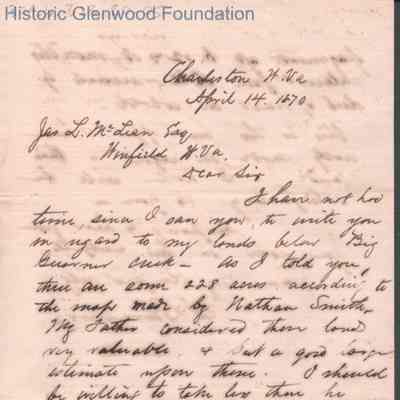 Historic Glenwood Foundation
Charleston W.Va
April 14. 1870
Jas L. McLean Esq
Winfield W.Va.
Dear Sir
I have not had
time, since I saw you, to write you
in regard to my lands below Big
creek - As I told you,
there are some 228 acres, according to
the map made by Nathan Smith,
My Father considered these lands
very valuable, & put a good large
estimate upon them. I should
be willing to take less than he